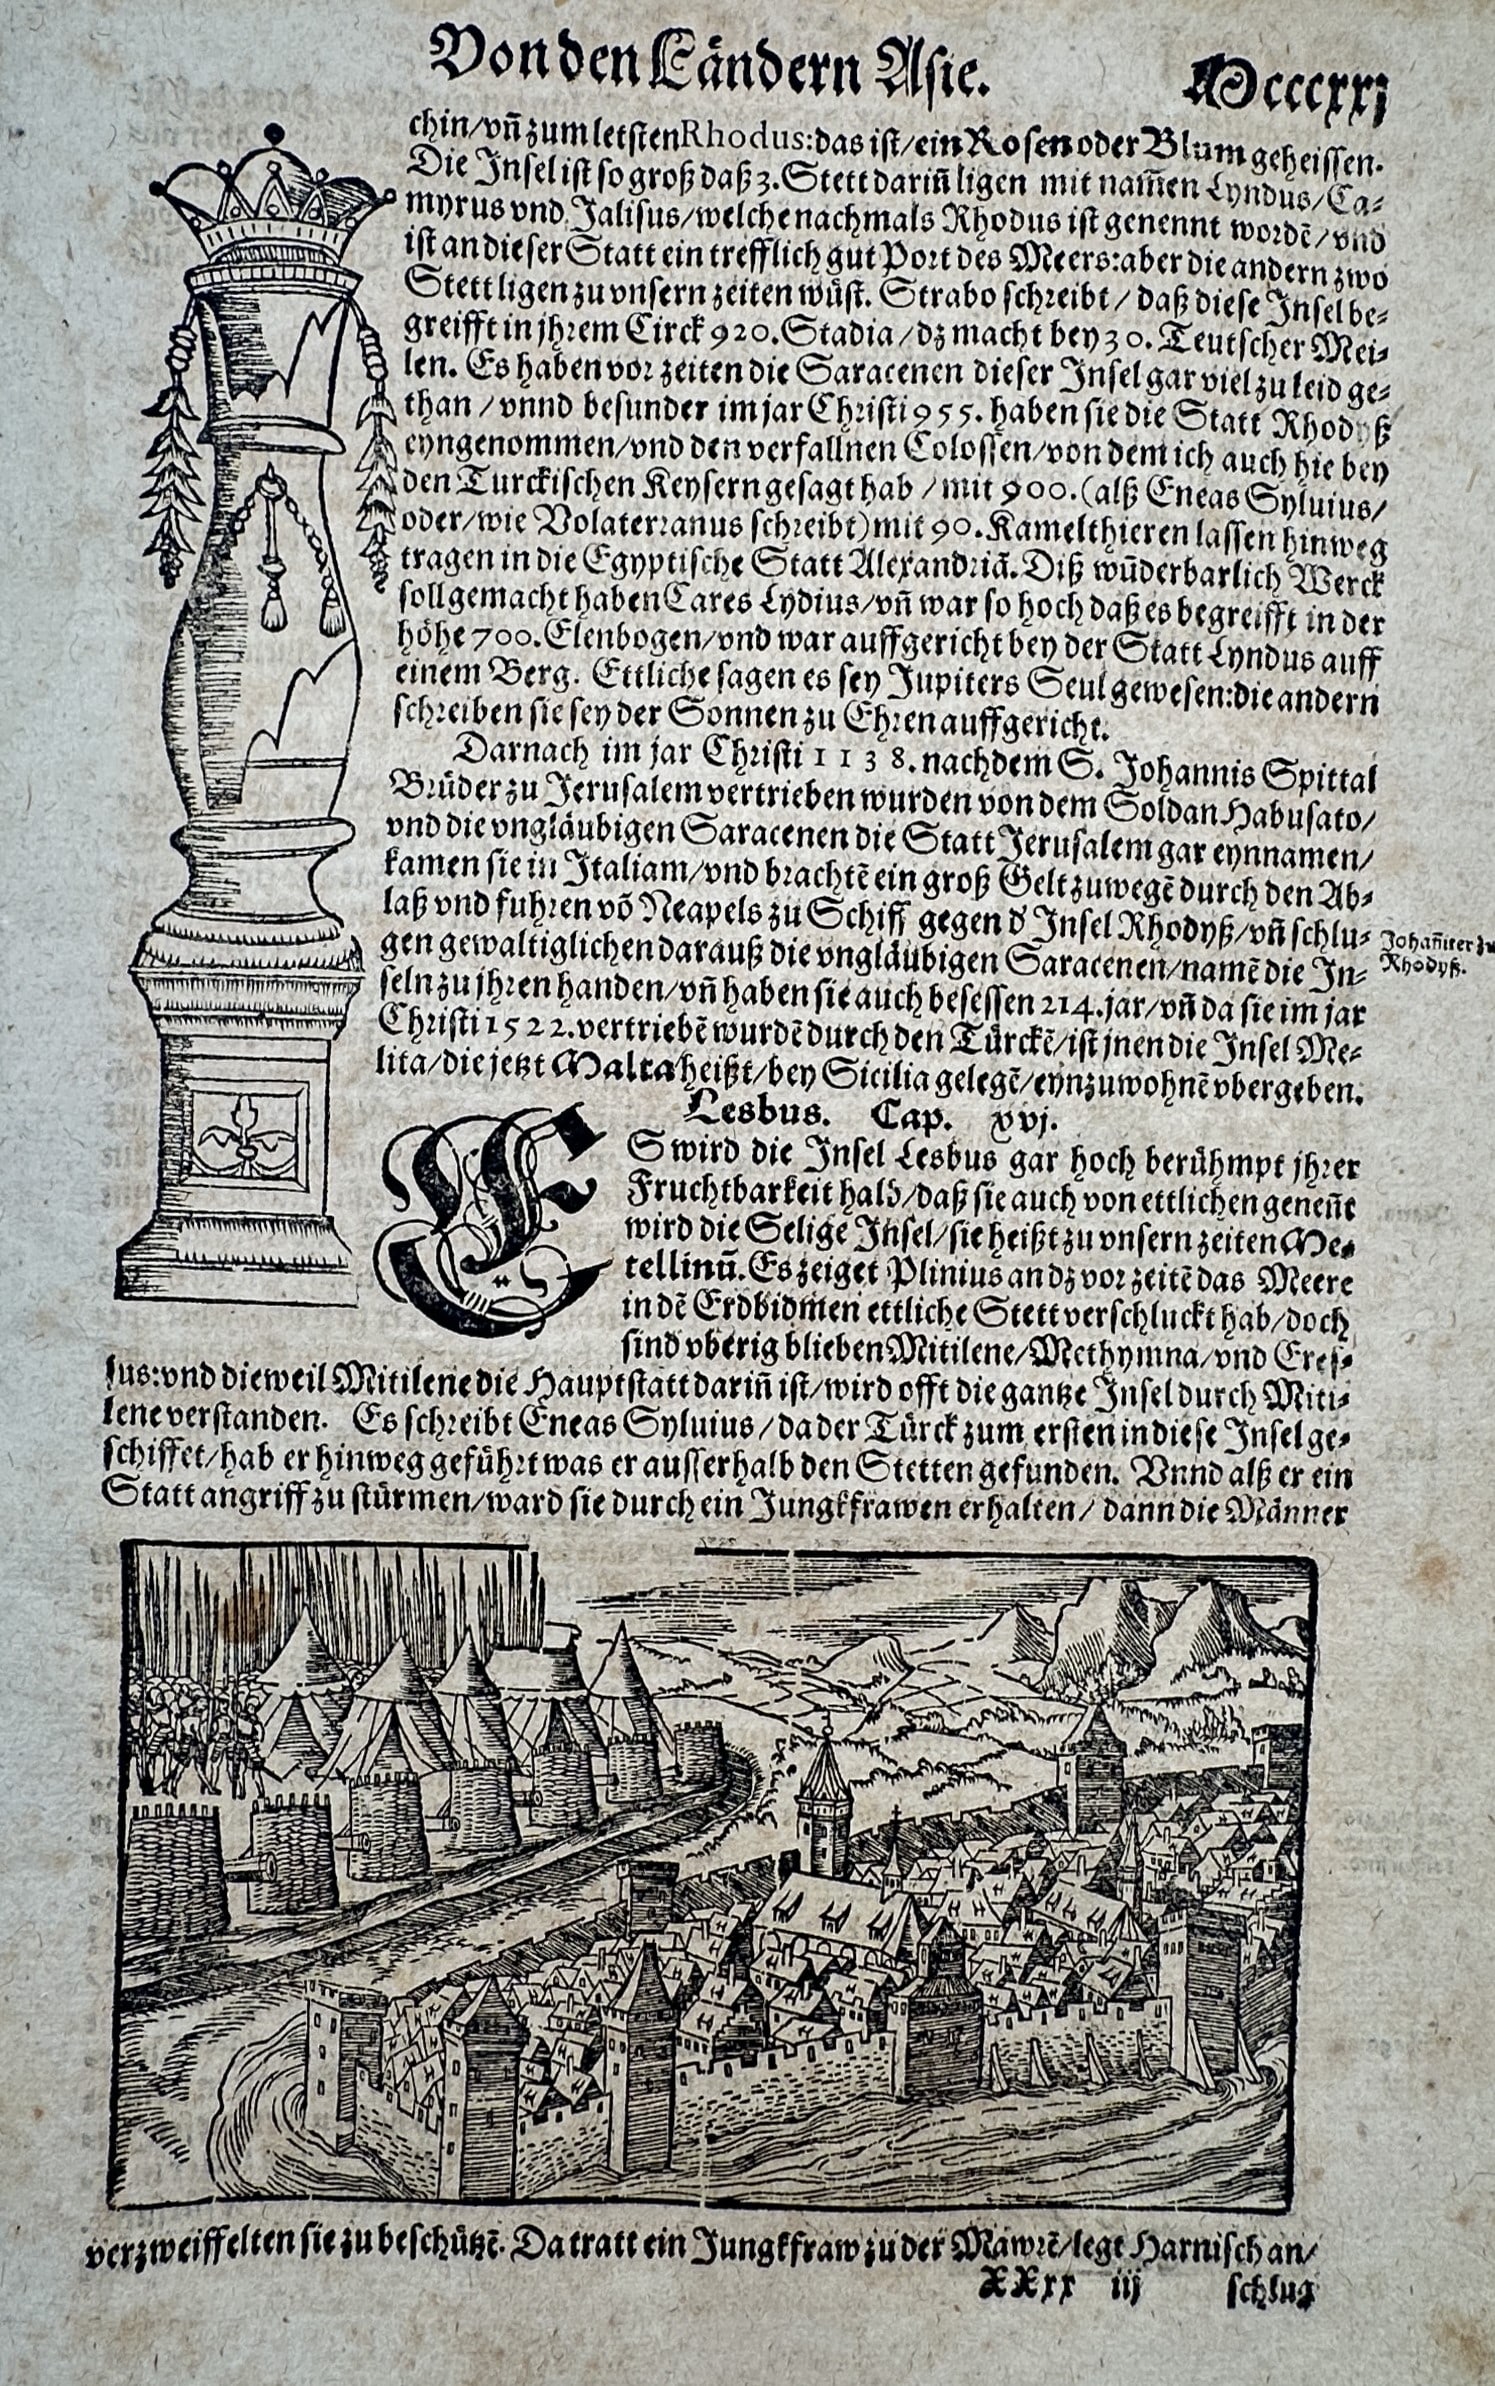 Von den Ländern Asie.
Mcccxxj
chin/vñ zum letsten Rhodus: das ist/ein Rosen oder Blum geheissen.
Die Insel ist so groß daß 3. Stett dariñ ligen mit nam̃en Lyndus/Ca-
myrus vnd Jalisus/welche nachmals Rhodus ist genennt wordẽ/vnd
ist an dieser Statt ein trefflich gut Port des Meers: aber die andern zwo
Stett ligen zu vnsern zeiten wüst. Strabo schreibt/daß diese Insel be-
greifft in jhrem Circk 920. Stadia/dz macht bey 30. Teutscher Mei-
len. Es haben vor zeiten die Saracenen dieser Insel gar viel zu leid ge-
than/vnnd besunder im jar Christi 955. haben sie die Statt Rhodyß
eyngenommen/vnd den verfallnen Colossen/von dem ich auch hie bey
den Turckischen Keysern gesagt hab/mit 900. (alß Eneas Syluius/
oder/wie Volaterranus schreibt) mit 90. Kamelthieren lassen hinweg
tragen in die Egyptische Statt Alexandriã. Diß wũderbarlich Werck
soll gemacht haben Cares Lydius/vñ war so hoch daß es begreifft in der
höhe 700. Elenbogen/vnd war auffgericht bey der Statt Lyndus auff
einem Berg. Ettliche sagen es sey Jupiters Seul gewesen: die andern
schreiben sie sey der Sonnen zu Ehren auffgericht.
Darnach im jar Christi 1138. nach dem S. Johannis Spittal
Brüder zu Jerusalem vertrieben wurden von dem Soldan Habusato/
vnd die vngläubigen Saracenen die Statt Jerusalem gar eynnamen/
kamen sie in Italiam/vnd brachtẽ ein groß Gelt zuwegẽ durch den Ab-
laß vnd fuhren võ Neapels zu Schiff gegen d' Insel Rhodyß/vñ schlu-
Johañiter zu
Rhodyß.
gen gewaltiglichen darauß die vngläubigen Saracenen/namẽ die In-
seln zu jhren handen/vñ haben sie auch besessen 214. jar/vñ da sie im jar
Christi 1522. vertriebẽ wurdẽ durch den Türckẽ/ist jnen die Insel Me-
lita/die jetzt Malta heißt/bey Sicilia gelegẽ/eynzuwohnẽ vbergeben.
Lesbus. Cap. xvj.
ES wird die Insel Lesbus gar hoch berühmpt jhrer
Fruchtbarkeit halb/daß sie auch von ettlichen geneñt
wird die Selige Insel/sie heißt zu vnsern zeiten Me-
tellinũ. Es zeiget Plinius an dz vor zeitẽ das Meere
in dẽ Erdbidmen ettliche Stett verschluckt hab/doch
sind vberig blieben Mitilene/Methymna/vnd Eres-
sus: vnd dieweil Mitilene die Hauptstatt dariñ ist/wird offt die gantze Insel durch Miti-
lene verstanden. Es schreibt Eneas Syluius/da der Türck zum ersten in diese Insel ge-
schiffet/hab er hinweg geführt was er ausserhalb den Stetten gefunden. Vnnd alß er ein
Statt angriff zu stürmen/ward sie durch ein Jungkfrawen erhalten/dann die Männer
verzweiffelten sie zu beschützẽ. Da tratt ein Jungkfraw zu der Mawrẽ/legt Harnisch an/
XXxx iij
schlug